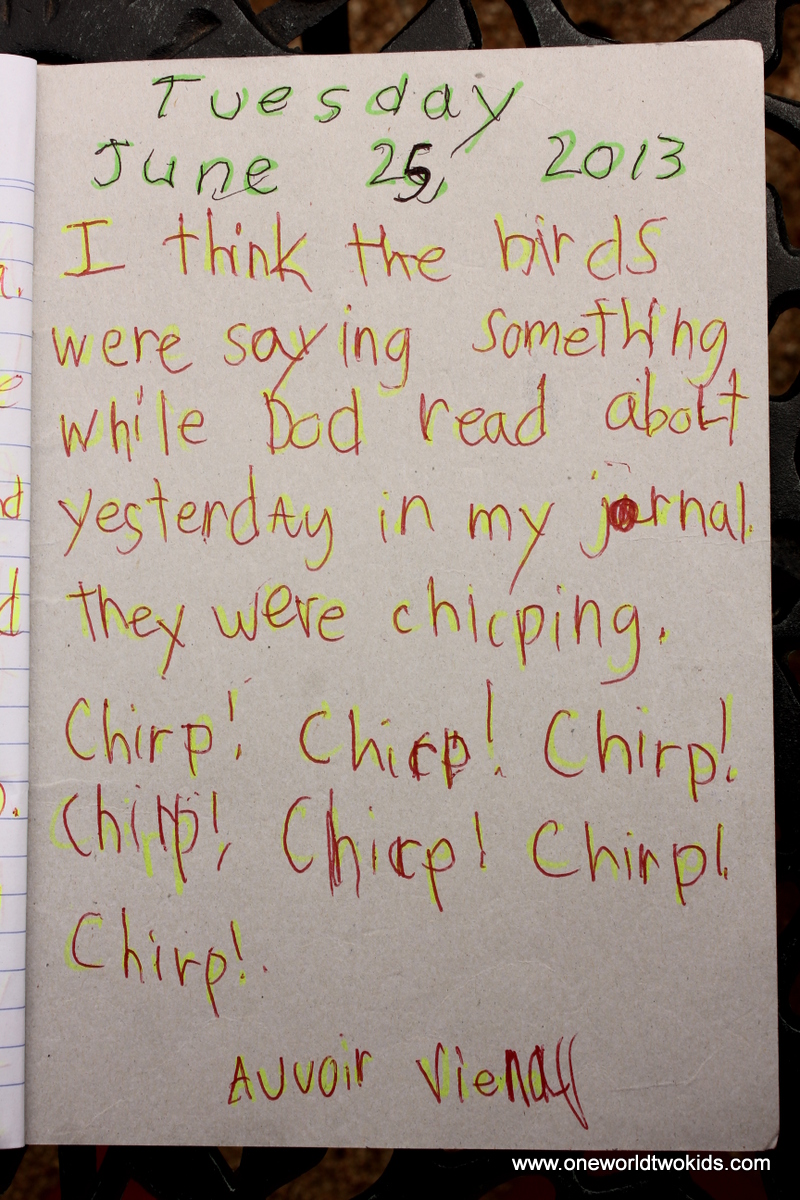 Tuesday
June 25, 2013
I think the birds
were saying something
while Dad read abolt
yesterday in my jornal.
they were chirping.
Chirp! Chirp! Chirp!
Chirp! Chirp! Chirp!
Chirp!
Auvoir
www.oneworldtwokids.com